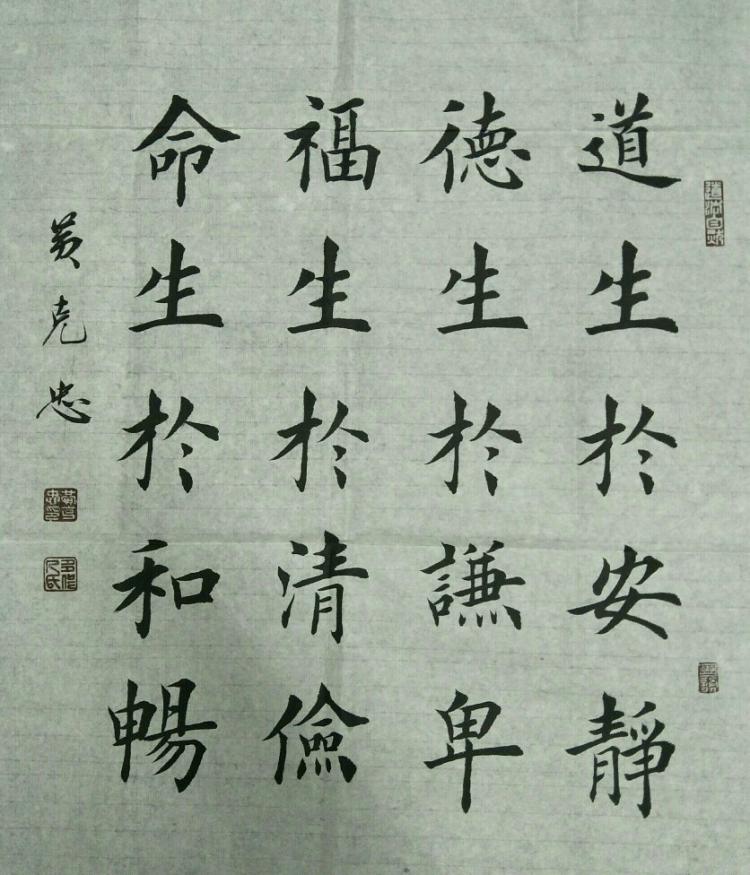 道生於安靜
德生於謙卑
福生於清儉
命生於和暢
黄克忠